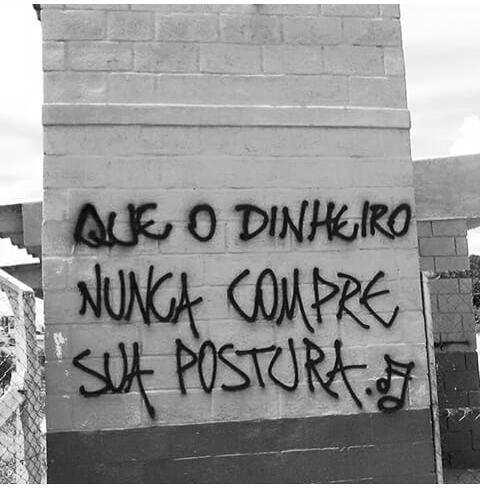 QUE O DINHEIRO
NUNCA COMPRE
SUA POSTURA.